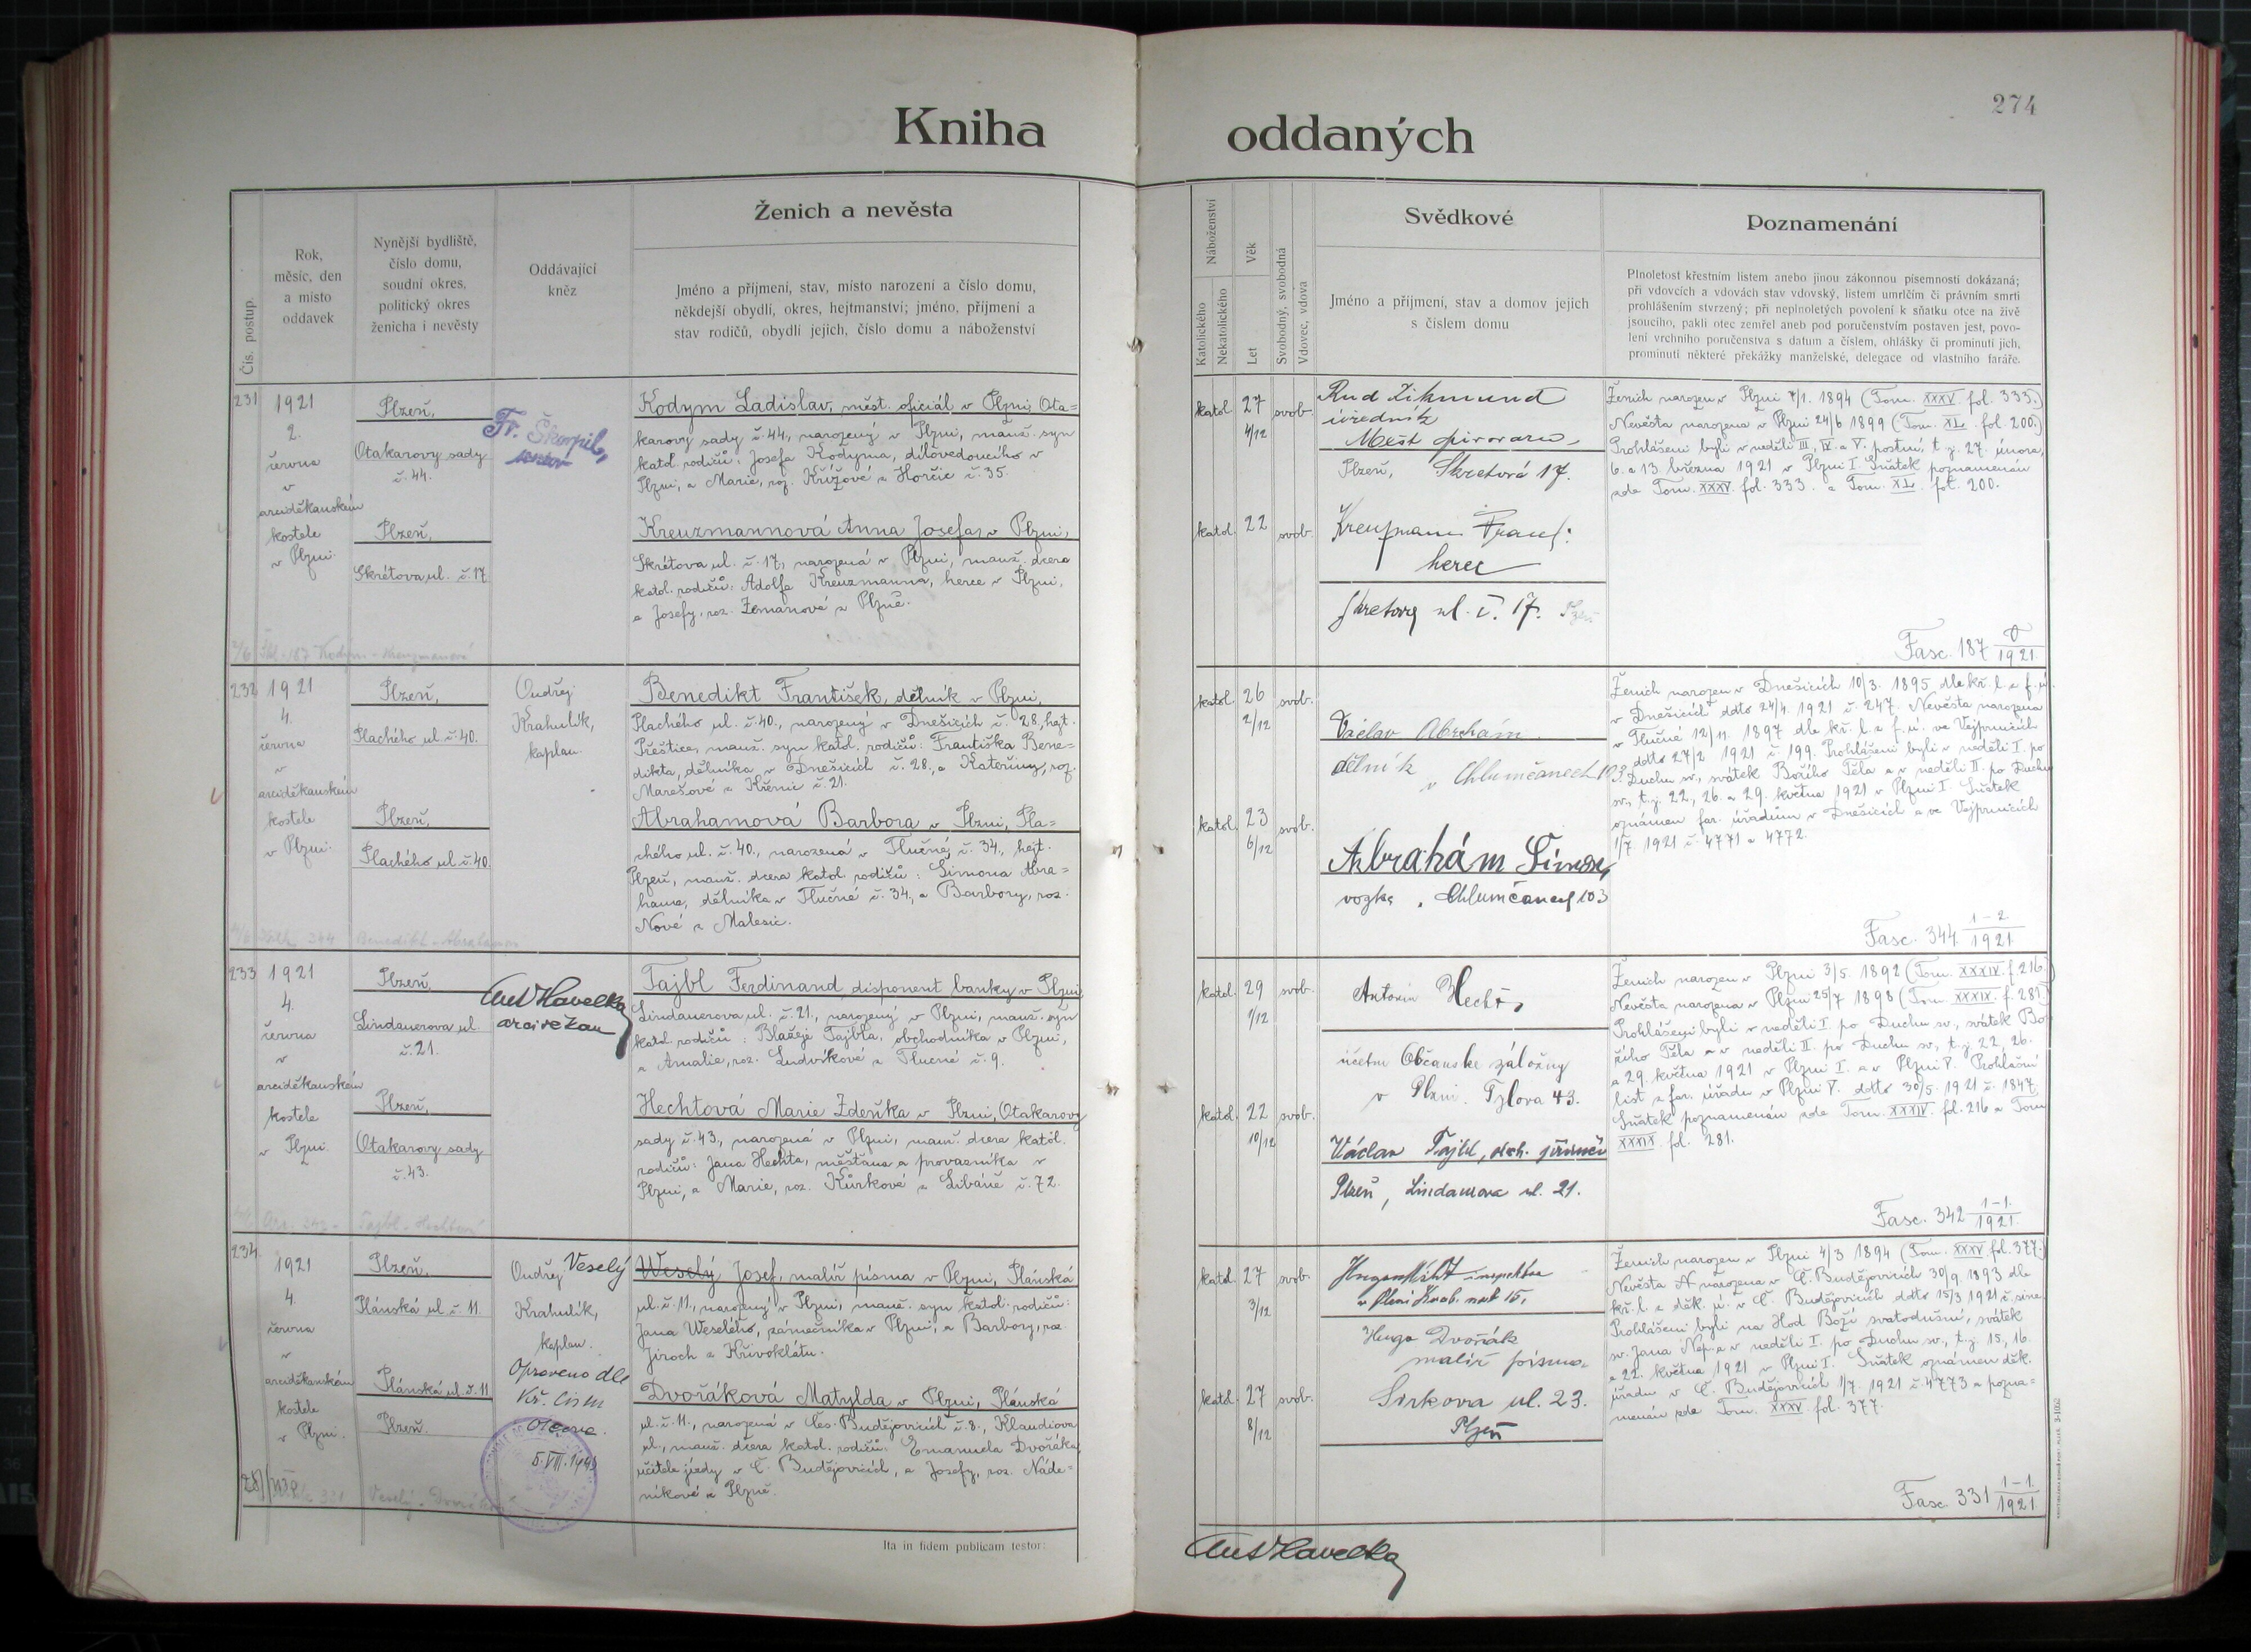 Kniha
oddaných
274
Čís. postup.
Rok,
měsíc, den
a místo
oddavek
Nynější bydliště,
číslo domu,
soudní okres,
politický okres
ženicha i nevěsty
Oddávající
kněz
Ženich a nevěsta
Jméno a příjmení, stav, místo narození a číslo domu,
někdejší obydlí, okres, hejtmanství; jméno, příjmení a
stav rodičů, obydlí jejich, číslo domu a náboženství
Náboženství
Katolického
Nekatolického
Věk
Let
Svobodný, svobodná
Vdovec, vdova
Svědkové
Jméno a příjmení, stav a domov jejich
s číslem domu
Poznamenání
Plnoletost křestním listem anebo jinou zákonnou písemností dokázaná;
při vdovcích a vdovách stav vdovský, listem umrlčím či právním smrti
prohlášením stvrzený; při neplnoletých povolení k sňatku otce na živě
jsoucího, pakli otec zemřel aneb pod poručenstvím postaven jest, povo-
lení vrchního poručenstva s datum a číslem, ohlášky či prominutí jich,
prominutí některé překážky manželské, delegace od vlastního faráře.
231
1921
2.
června
v
arciděkanském
kostele
v Plzni.
Plzeň,
Otakarovy sady
č. 44.
Plzeň,
Skrétova ul. č. 17.
Fr. Škorpil,
Kodym Ladislav, měst. oficiál v Plzni, Ota=
karovy sady č. 44, narozený v Plzni, manž. syn
katol. rodičů: Josefa Kodyma, dílovedoucího v
Plzni, a Marie, roz. Křížové z Horčic č. 35.
Kreuzmannová Anna Josefa, v Plzni,
Skrétova ul. č. 17, narozená v Plzni, manž. dcera
katol. rodičů: Adolfa Kreuzmanna, herce v Plzni,
a Josefy, roz. Zemanové z Plzně.
katol. 27 4/12 svob.
katol. 22 svob.
Rud Zikmund
úředník
Měšť pivovaru
Plzeň, Skretová 17.
Kreuzmann Franz:
herec
Skretovy ul. č. 17. Plzeň
Ženich narozen v Plzni 7/1. 1894 (Tom. XXXV fol. 333.)
Nevěsta narozena v Plzni 24/6 1899 (Tom. XL. fol. 200.)
Prohlášeni byli v neděli III., IV. a V. postní, t. j. 27. února,
6. a 13. března 1921 v Plzni I. Sňatek poznamenán
zde Tom. XXXV. fol. 333. a Tom. XL. fol. 200.
Fasc. 187 0/1921
232
1921
4.
června
v
arciděkanském
kostele
v Plzni.
Plzeň,
Plachého ul. č. 40.
Plzeň,
Plachého ul. č. 40.
Ondřej
Krahulík,
kaplan.
Benedikt František, dělník v Plzni,
Plachého ul. č. 40., narozený v Dnešicích č. 28, hejt.
Přeštice, manž. syn katol. rodičů: Františka Bene=
dikta, dělníka v Dnešicích č. 28., a Kateřiny, roz.
Marešové z Křenic č. 21.
Abrahamová Barbora v Plzni, Pla=
chého ul. č. 40., narozená v Tlučné, č. 34., hejt.
Plzeň, manž. dcera katol. rodičů: Šimona Abra=
hama, dělníka v Tlučné č. 34, a Barbory, roz.
Nové z Malesic.
katol. 26 2/12 svob.
katol. 23 6/12 svob.
Václav Abrahám
dělník v Chlumčanech 103
Abrahám Šimon,
vogka, Chlumčanech 103
Ženich narozen v Dnešicích 10/3. 1895 dle kř. l. z f. ú.
v Dnešicích ddto 24/4. 1921 č. 247. Nevěsta narozena
v Tlučné 12/11. 1897 dle kř. l. z f. ú. ve Vejprnicích
ddto 27/2 1921 č. 199. Prohlášeni byli v neděli I. po
Duchu sv., svátek Božího Těla a v neděli II. po Duchu
sv., t. j. 22., 26. a 29. května 1921 v Plzni I. Sňatek
oznámen far. úřadům v Dnešicích a ve Vejprnicích
1/7. 1921 č. 4771 a 4772.
Fasc. 344 1-2/1921
233
1921
4.
června
v
arciděkanském
kostele
v Plzni
Plzeň,
Lindauerova ul.
č. 21.
Plzeň,
Otakarovy sady
č. 43.
Ant Havelka
arciděkan
Tajbl Ferdinand, disponent banky v Plzni
Lindauerova ul. č. 21., narozený v Plzni, manž. syn
katol. rodičů: Blažeje Tajbla, obchodníka v Plzni,
a Amalie, roz. Ludvíkové z Tlucné č. 9.
Hechtová Marie Zdeňka v Plzni, Otakarovy
sady č. 43., narozená v Plzni, manž. dcera katol.
rodičů: Jana Hechta, měšťana a provazníka v
Plzni, a Marie, roz. Kůrkové z Libáně č. 72.
katol. 29 1/12 svob.
katol. 22 10/12 svob.
Antonín Hecht,
účetní Občanské záložny
v Plzni. Tylova 43.
Václav Tajbl,
Plzeň, Lindauerova ul. 21.
Ženich narozen v Plzni 3/5. 1892 (Tom. XXXIV. f. 216.)
Nevěsta narozena v Plzni 25/7 1898 (Tom. XXXIX. f. 281.)
Prohlášeni byli v neděli I. po Duchu sv., svátek Bo
žího Těla a v neděli II. po Duchu sv., t. j. 22., 26.
a 29. května 1921 v Plzni I. a v Plzni V. Prohlášní
list z far. úřadu v Plzni V. ddto 30/5. 1921 č. 1847.
Sňatek poznamenán zde Tom. XXXIV. fol. 216 a Tom
XXXIX. fol. 281.
Fasc. 342 1-1./1921.
234
1921
4.
června
v
arciděkanském
kostele
v Plzni.
Plzeň,
Plánská ul. č. 11.
Plánská ul. č. 11
Plzeň.
Ondřej
Krahulík,
kaplan.
Opraveno dle
Kř. listu
otcova.
5. VIII. 1943
Veselý Weselý Josef, malíř písma v Plzni, Plánská
ul. č. 11., narozený v Plzni, manž. syn katol. rodičů:
Jana Weselého, zámečníka v Plzni, a Barbory, roz.
Jiroch z Křivoklátu.
Dvořáková Matylda v Plzni, Plánská
ul. č. 11., narozená v Čes. Budějovicích č. 8., Klaudiova
ul., manž. dcera katol. rodičů: Emanuela Dvořáka,
učitele jízdy v Č. Budějovicích, a Josefy, roz. Náde=
níkové z Plzně.
katol. 27 3/12 svob.
katol. 27 8/12 svob.
Hugo Dvořák
malíř písma
Sirkova ul. 23.
Plzeň
Ženich narozen v Plzni 4/3 1894 (Tom. XXXV. fol. 377.)
Nevěsta narozena v Č. Budějovicích 30/9. 1893 dle
kř. l. z děk. ú. v Č. Budějovicích ddto 15/3 1921 č. sine.
Prohlášeni byli na Hod Boží svatodušní, svátek
sv. Jana Nep. a v neděli I. po Duchu sv., t. j. 15., 16.
a 22. května 1921 v Plzni I. Sňatek oznámen děk.
úřadu v Č. Budějovicích 1/7. 1921 č. 4773 a pozna=
menán zde Tom. XXXV. fol. 377.
Fasc. 331 1-1./1921
Ita in fidem publicam testor:
Ant Havelka